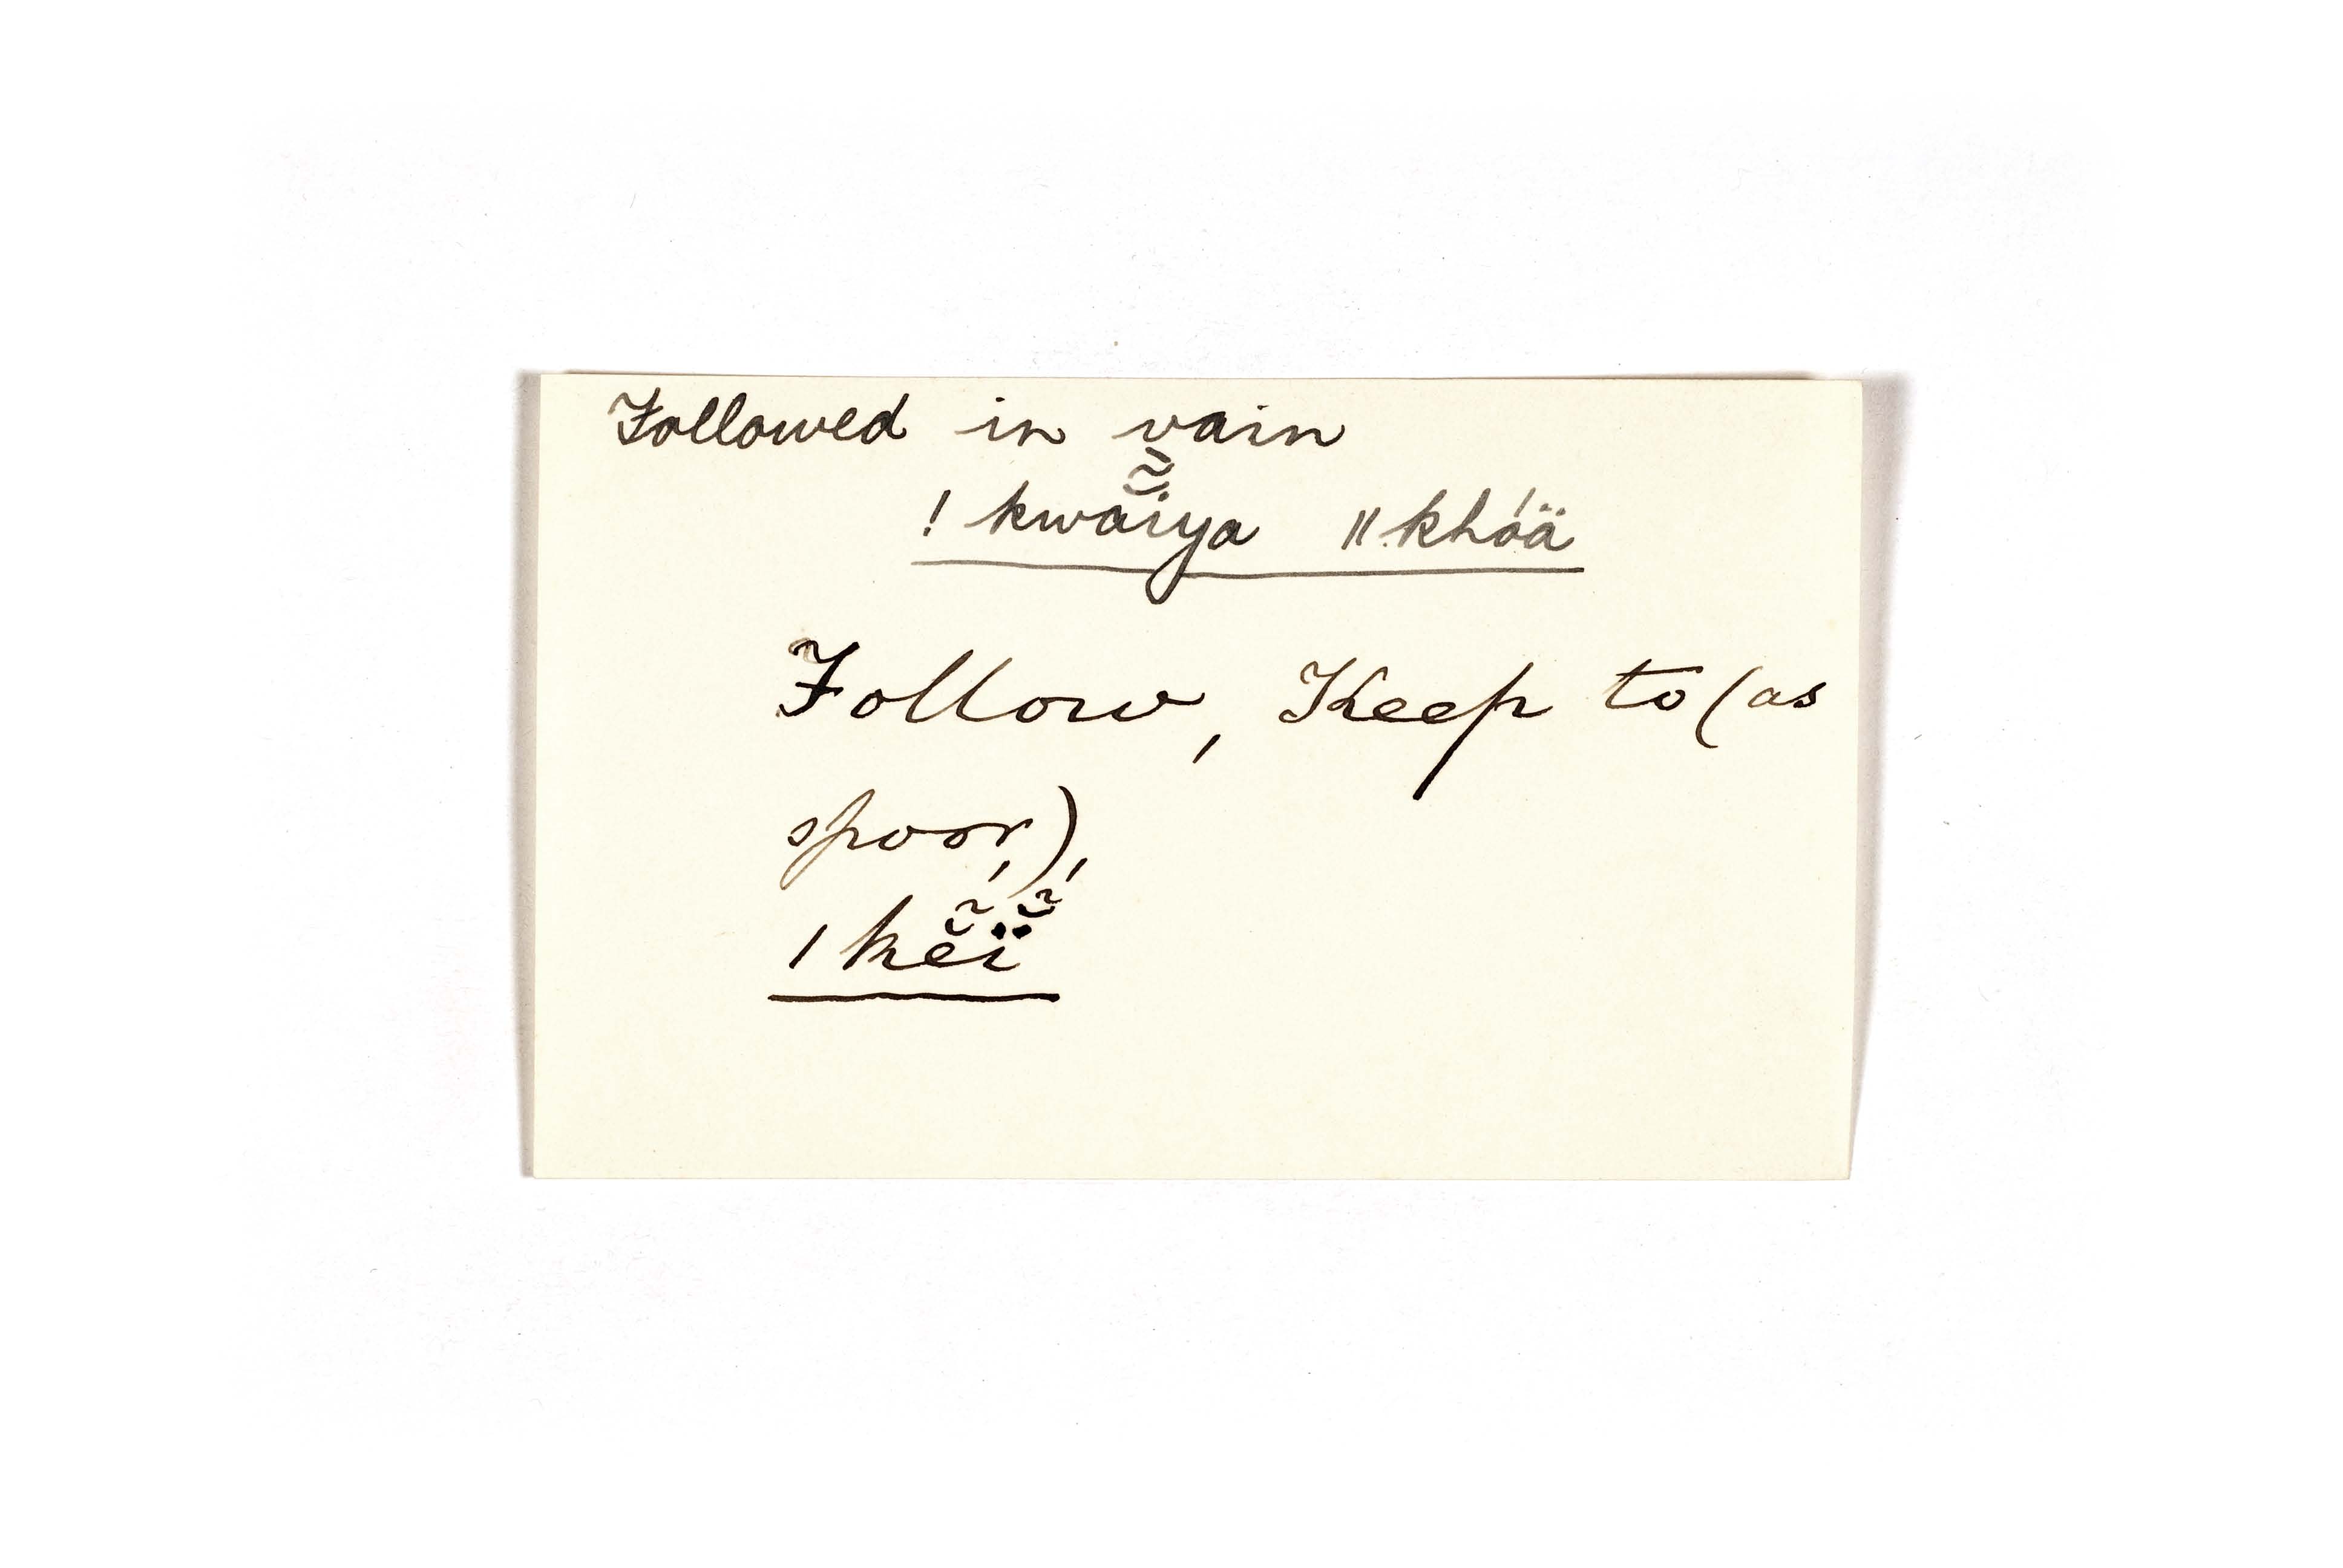 Followed in vain
! kwa͠iya ǁkhóä
Follow, Keep to (as
spoor,),
ǀkĕ̃ĭ̤̈̃